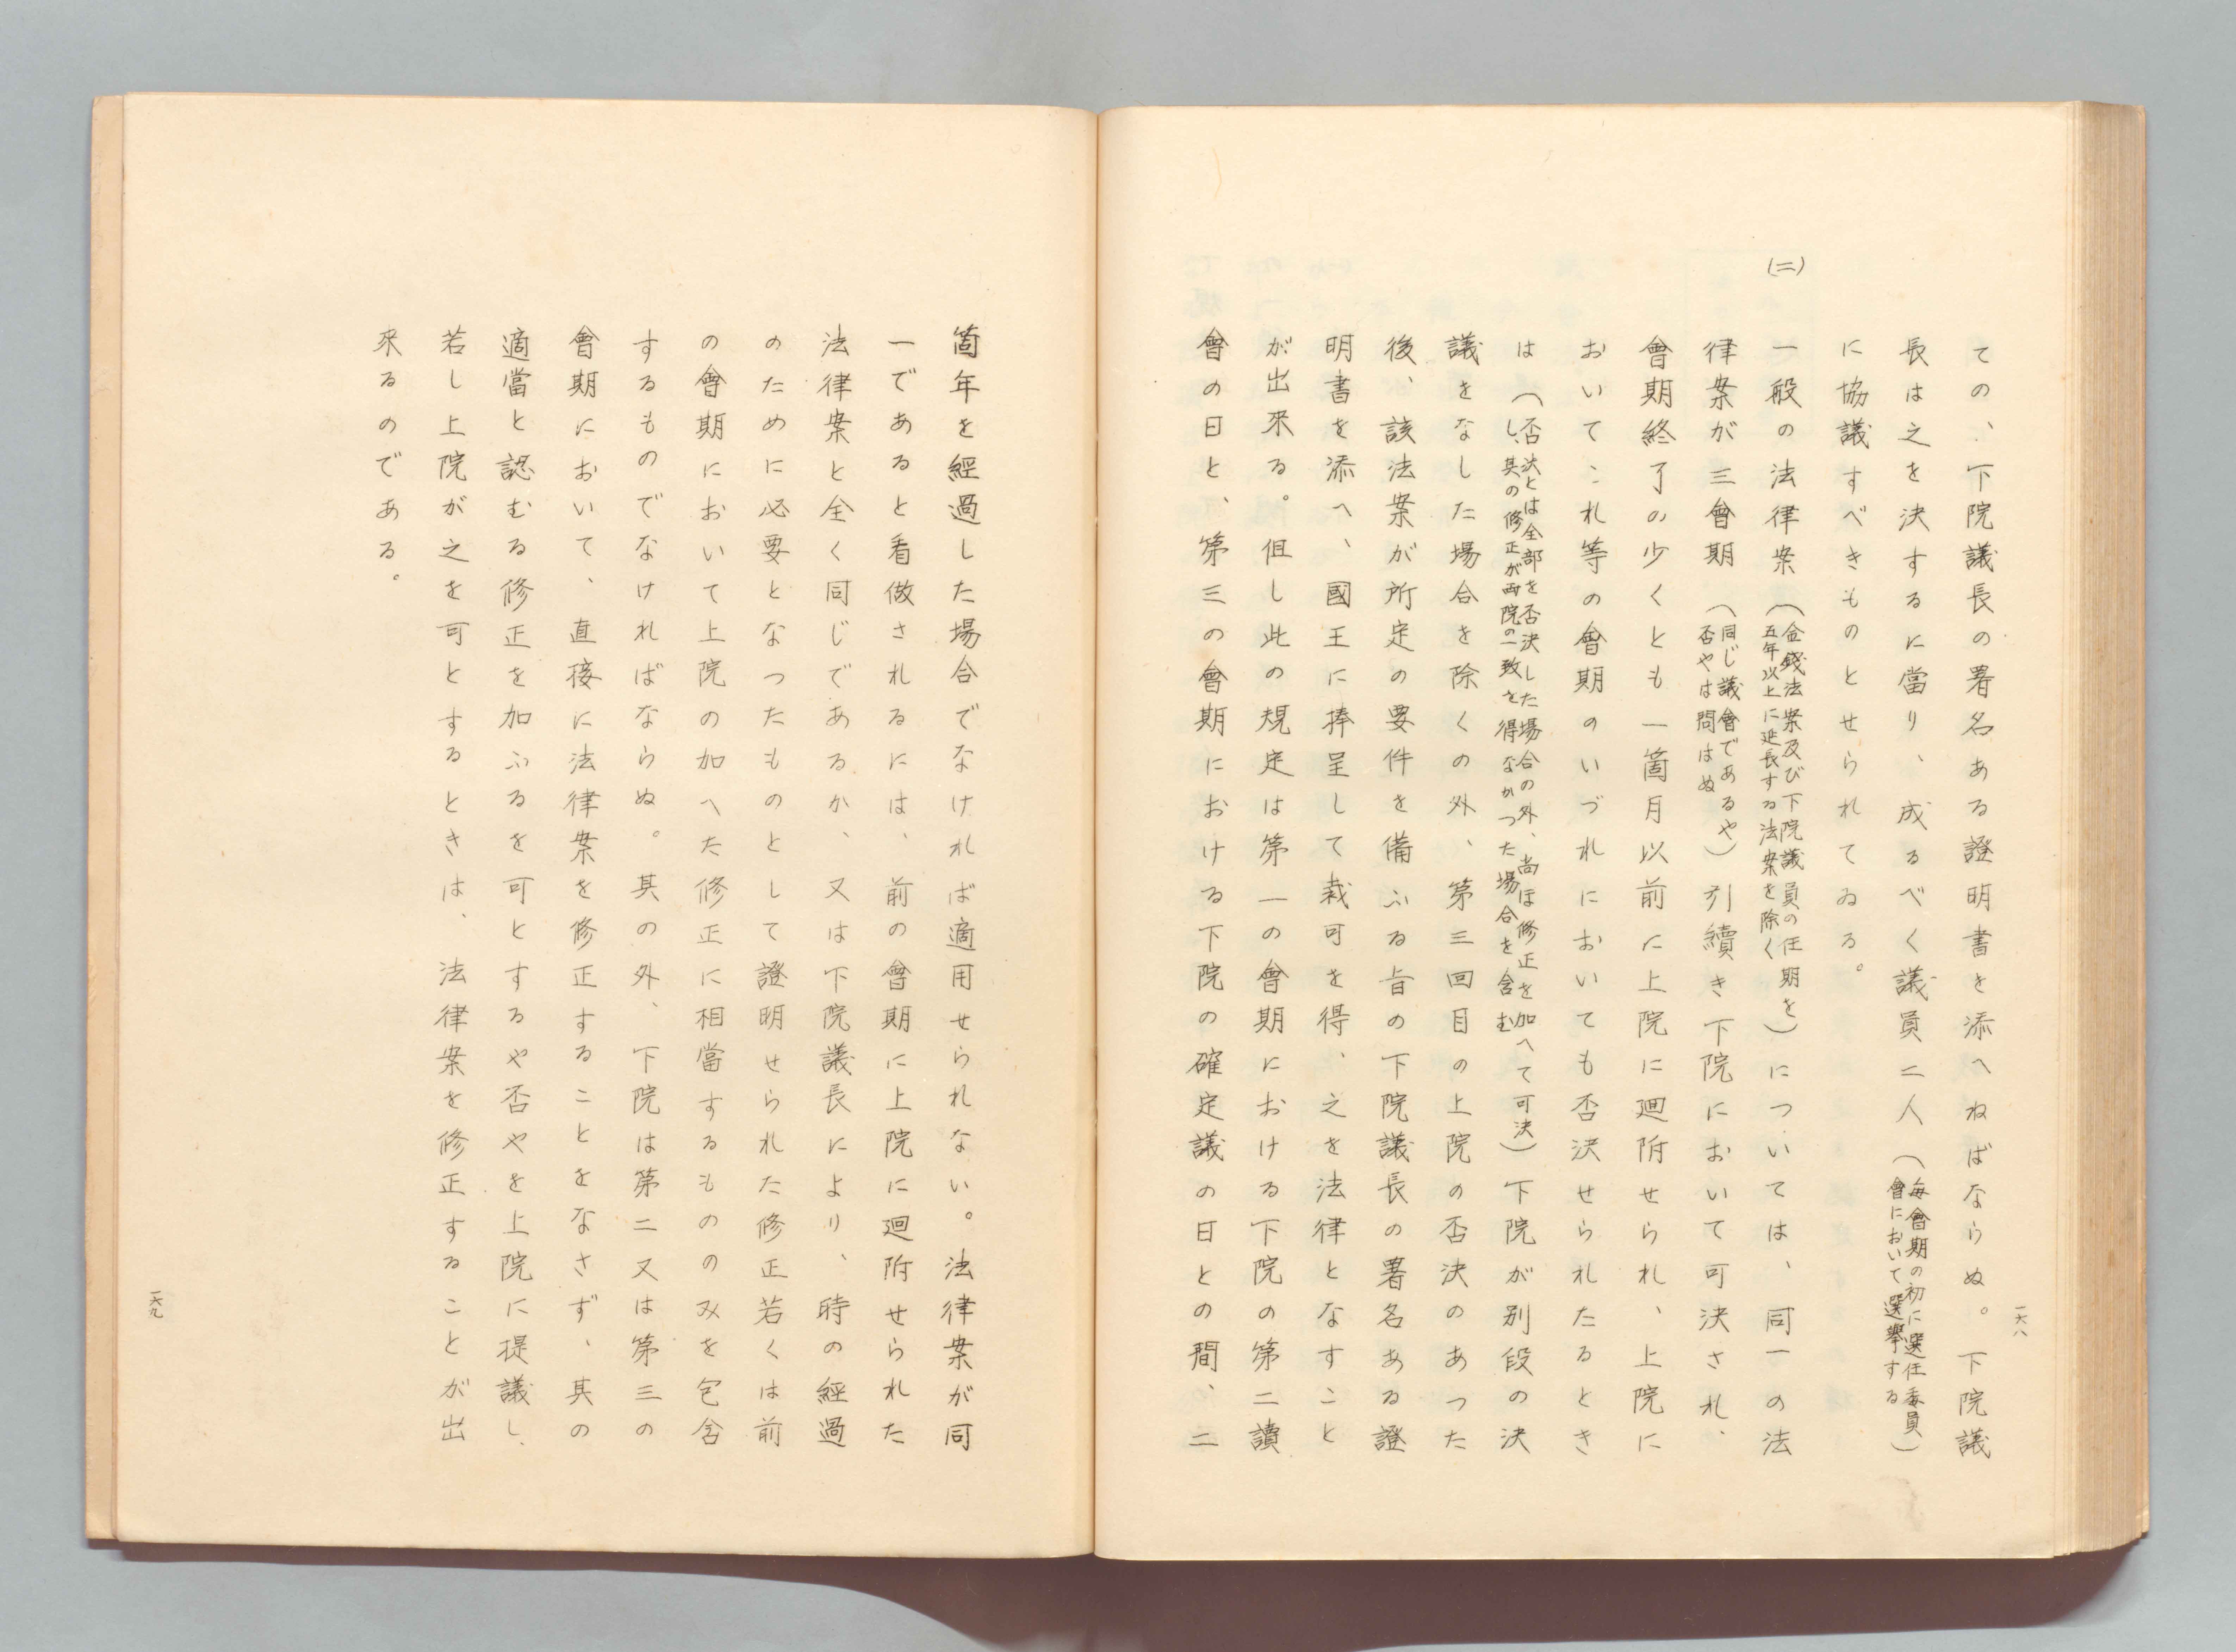 一六八
ての、下院議長の署名ある證明書を添へねばならぬ。下院議
長は之を決するに當り、成るべく議員二人（毎會期の初に選任委員
會において選擧する）
に協議すべきものとせられてゐる。
(二)
一般の法律案（金錢法案及び下院議員の任期を
五年以上に延長する法案を除く）については、同一の法
律案が三會期（同じ議會であるや
否やは問はぬ）引續き下院において可決され、
會期終了の少くとも一箇月以前に上院に廻附せられ、上院に
おいてこれ等の會期のいづれにおいても否決せられたるとき
は（否決とは全部を否決した場合の外、尚ほ修正を加へて可決
し、其の修正が両院の一致を得なかつた場合を含む）下院が別段の決
議をなした場合を除くの外、第三回目の上院の否決のあつた
後、該法案が所定の要件を備ふる旨の下院議長の署名ある證
明書を添へ、國王に捧呈して裁可を得、之を法律となすこと
が出來る。但し此の規定は第一の會期における下院の第二讀
會の日と、第三の會期における下院の確定議の日との間、二
箇年を經過した場合でなければ適用せられない。法律案が同
一であると看做されるには、前の會期に上院に廻附せられた
法律案と全く同じであるか、又は下院議長により、時の經過
のために必要となつたものとして證明せられた修正若くは前
の會期において上院の加へた修正に相當するもののみを包含
するものでなければならぬ。其の外、下院は第二又は第三の
會期において、直接に法律案を修正することをなさず、其の
適當と認むる修正を加ふるを可とするや否やを上院に提議し、
若し上院が之を可とするときは、法律案を修正することが出
來るのである。
一六九